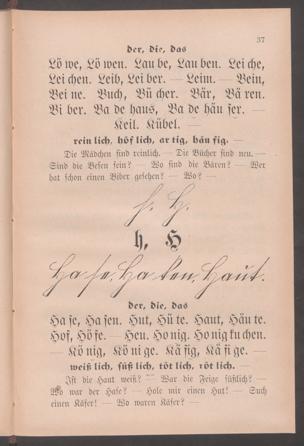 37
der, die, das
Lö we, Lö wen. Lau be, Lau ben. Lei che,
Lei chen. Leib, Lei ber. — Leim. — Bein,
Bei ne. Buch, Bü cher. Bär, Bä ren.
Bi ber. Ba de haus, Ba de häu ser. —
Keil. Kübel. —
rein lich, höf lich, ar tig, häu fig. —
Die Mädchen sind reinlich. — Die Bücher sind neu. —
Sind die Besen fein? — Wo sind die Bären? — Wer
hat schon einen Biber gesehen? — Wo? —
h. H.
h, H
Ha se. Ha ken. Haut.
der, die, das
Ha se, Ha sen. Hut, Hü te. Haut, Häu te.
Hof, Hö fe. — Heu. Ho nig. Ho nig ku chen.
— Kö nig, Kö ni ge. Kä fig, Kä fi ge. —
weiß lich, süß lich, töt lich, röt lich. —
Ist die Haut weiß? — War die Feige süßlich? —
Wo war der Hase? — Hole mir einen Hut! — Such
einen Käfer! — Wo waren Käfer? —